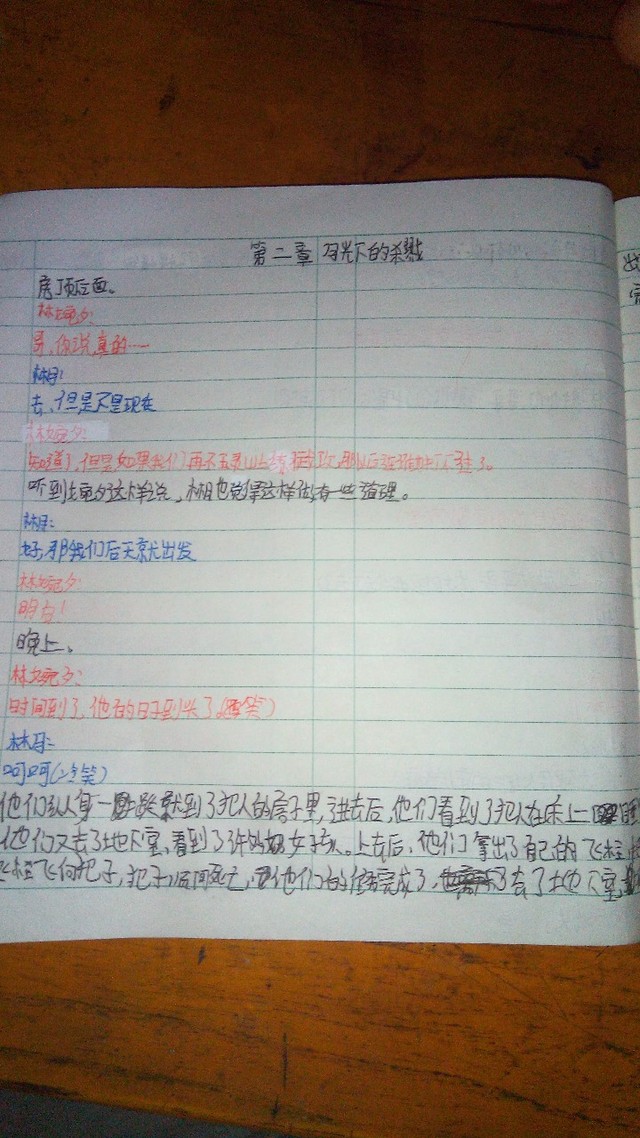 第二章 月光下的杀戮
房顶后面。
林婉夕:
哥,你说真的……
林月:
去,但是不是现在
林婉夕:
知道了,但是如果我们再不去灵山
听到婉夕这样说,林月也觉得这样做有一些道理。
林月:
好,那我们后天就出发
林婉夕:
明白!
晚上。
林婉夕:
时间到了,他的日子到头了(笑)
林月:
呵呵(笑)
他们纵身一跃就到了犯人的房子里,进去后,他们看到了犯人在床上
他们又去了地下室,看到了许多女孩。上去后,他们拿出了自己的飞
飞向犯子,犯子瞬间死亡,他们的任务完成了,去了地下室,